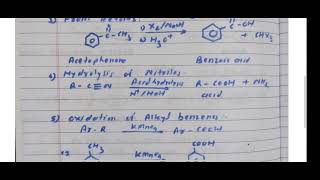 C-CH3
C-OH
i) X2/NaOH
ii) H3O+
+ CHX3
Acetophenone Benzoic acid
Hydrolysis of Nitriles:
R-C≡N Acid hydrolysis R-COOH + NH3
acid
oxidation of Alkyl benzene:
Ar-R KMnO4 Ar-COOH
CH3 COOH
KMnO4